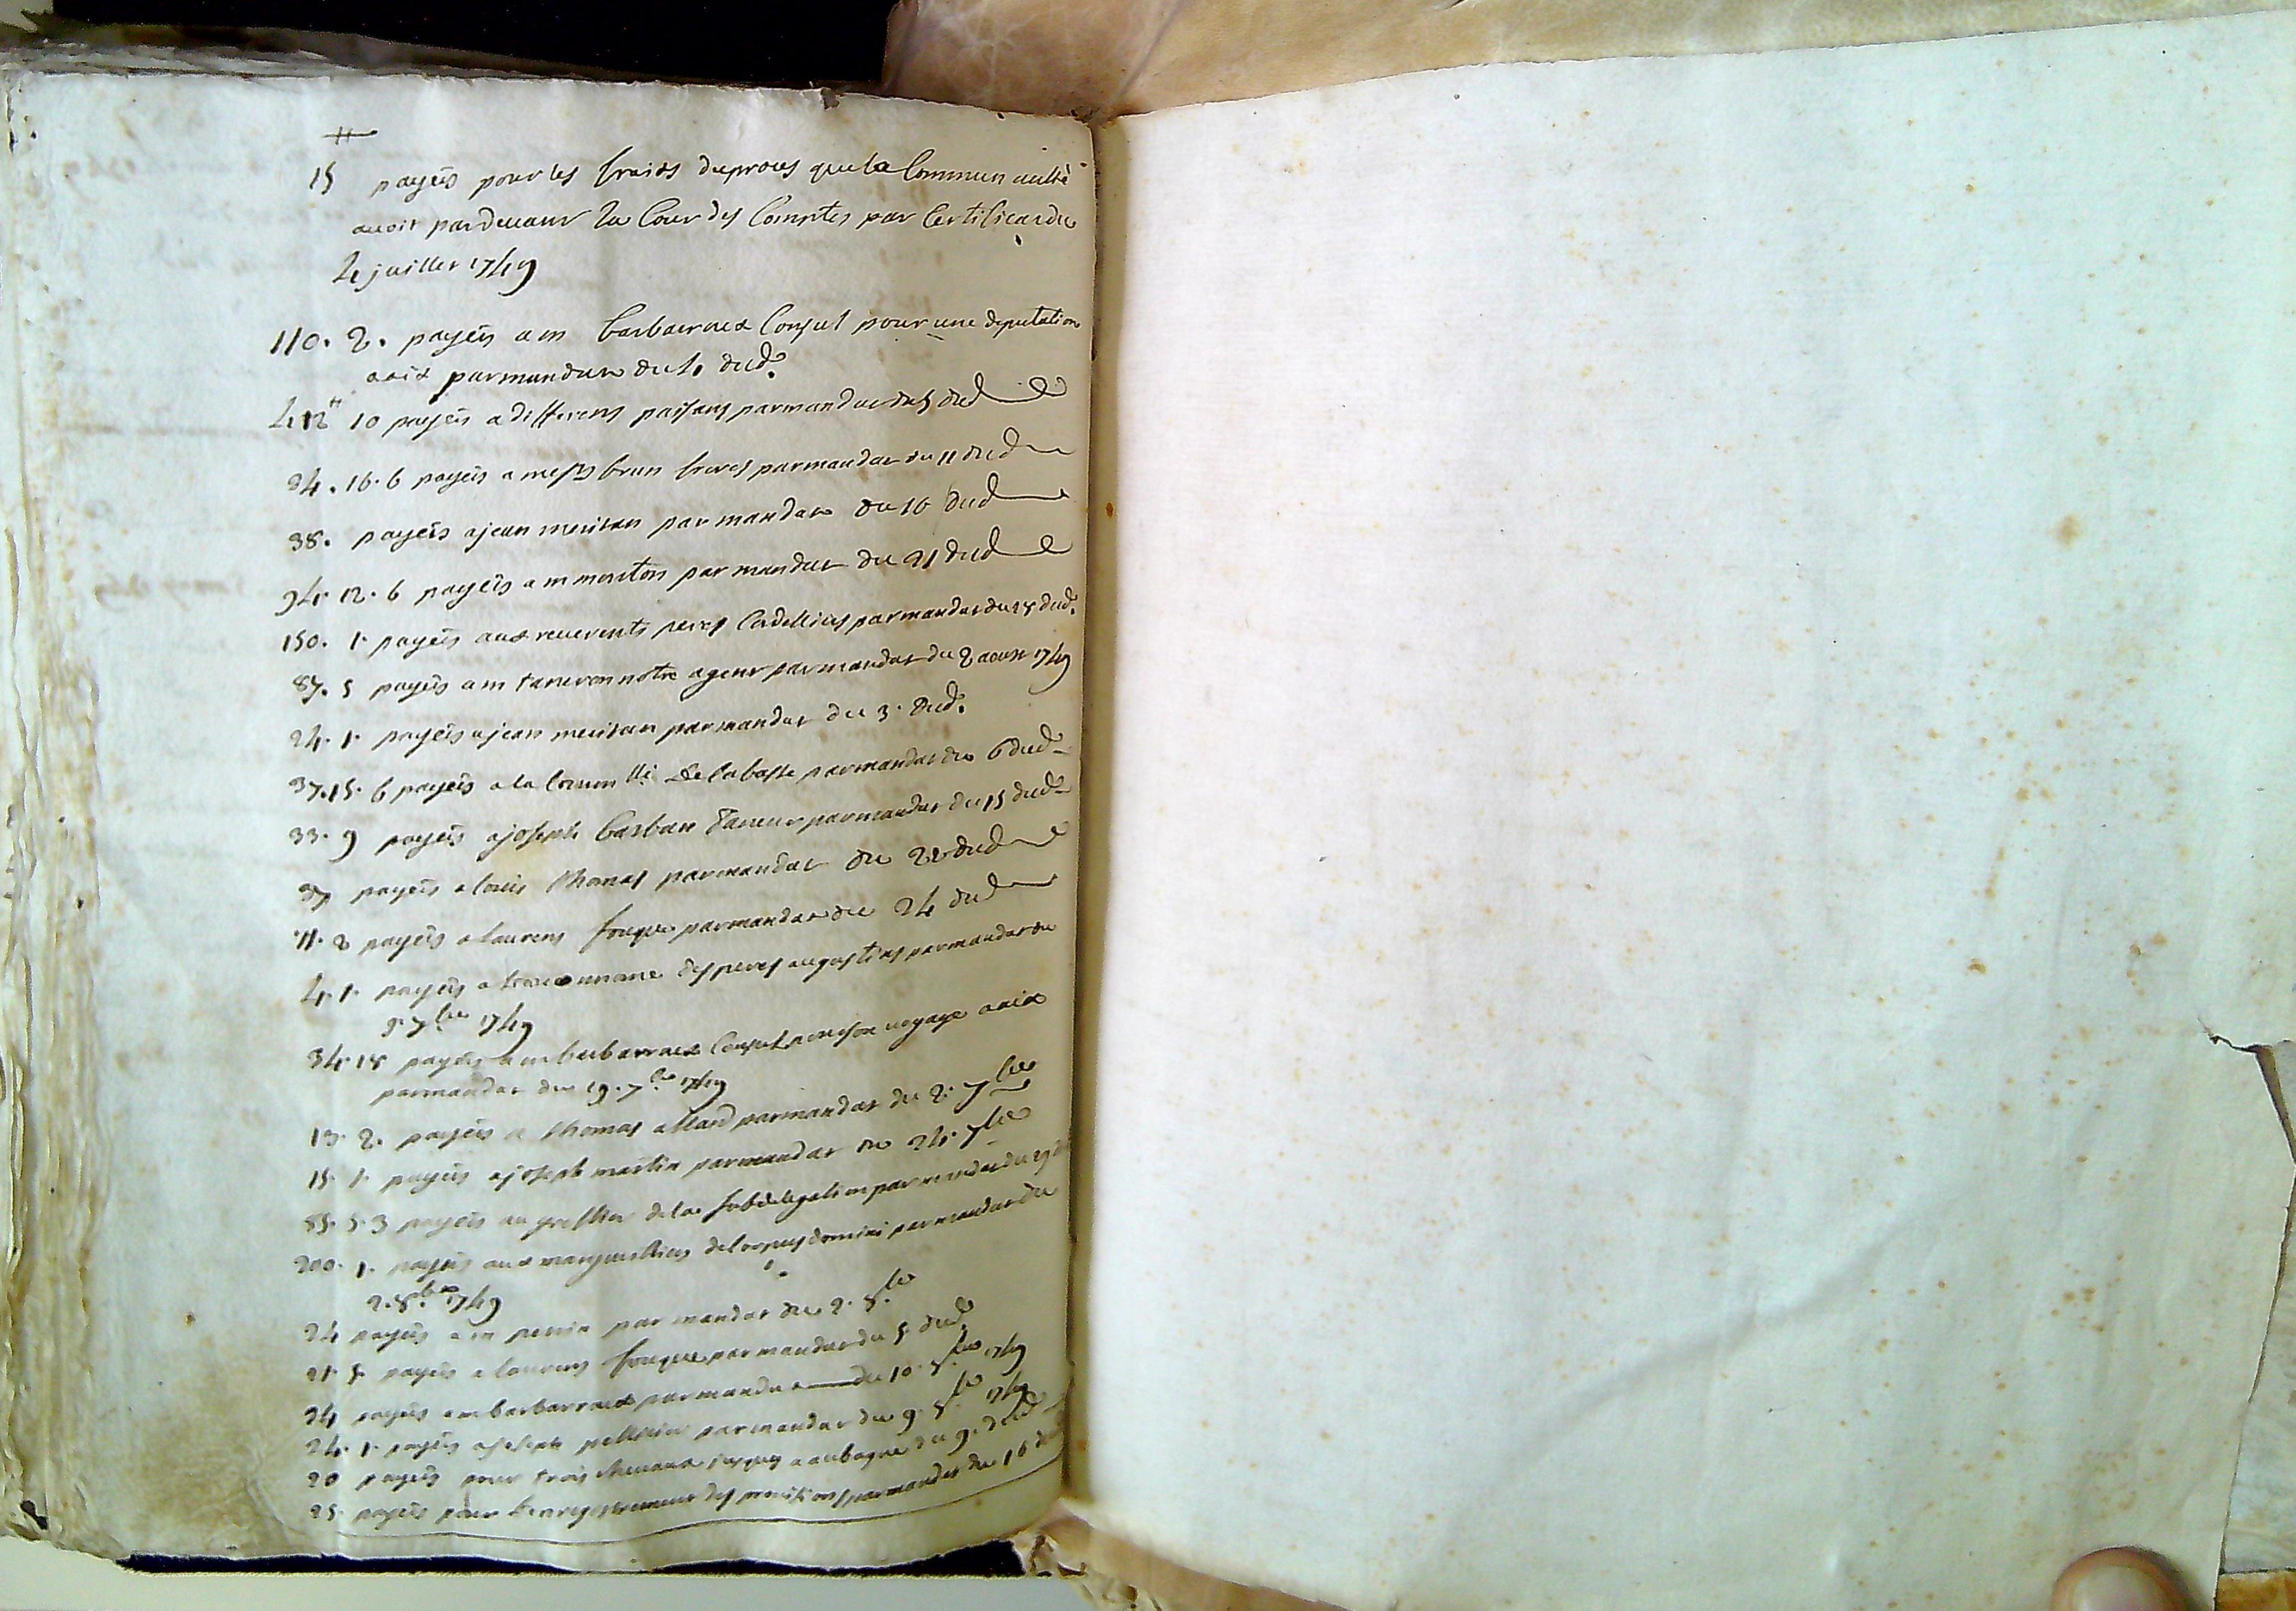 #
15 payés pour les frais du proces que la Communauthé
avoit pardevant la Cour des Comptes par Certificat du
4 juillet 1749
110. 2. payés a m barbarroux Consul pour une deputation
a aix par mandat du 4. dud.
412# 10 payés a differens paisans par mandat du 5 dud
84. 16. 6 payés a mess.rs brun freres par mandat du 11 dud
38. payés a jean meritan par mandat du 16 dud
94. 12. 6 payés a m monton par mandat du 21 dud
150. 1. payés aux reverents peres Cordelliers par mandat du 28 dud.
87. 5 payés a m taneron notre agent par mandat du 2 aoust 1749
24. 1. payés a jean meritan par mandat du 3. dud.
37. 15. 6 payés a la Comm.té de par mandat du 6 dud
33. 9 payés a joseph barban par mandat du 15 dud
37 payés a louis thomas par mandat du 22 dud
11. 2 payés a laurens fouque par mandat du 24 dud
4. 1. payés a des peres augustins par mandat du
9. 7.bre 1749
34. 18 payés a m barbarroux Consul pour son voyage a aix
par mandat du 19. 7.bre 1749
13. 2. payés a thomas allard par mandat du 2. 7.bre
15. 1. payés a joseph martin par mandat du 24. 7.bre
85. 5. 3 payés au greffier de la subdelegation par mandat du 29
200. 1. payés aux marguilliers del corpus domini par mandat du
2. 8.bre 1749
24 payés a m par mandat du 2. 8.bre
21. 8. payés a laurens fouque par mandat du 5. dud.
34 payés a m barbarroux par mandat du 10. 8.bre 1749
24. 1. payés a joseph par mandat du 9. 8.bre 1749
20 payés pour trois chevaux jusques a aubagne du 9. dud
25. payés pour l'enregistrement des provisions par mandat du 16